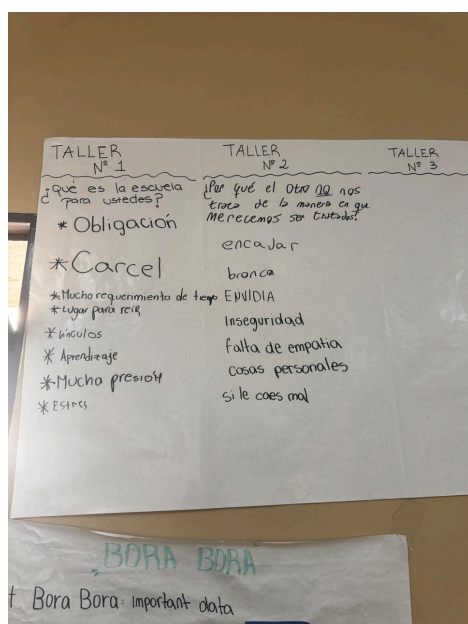 TALLER
Nº 1
¿Qué es la escuela
para ustedes?
* Obligación
* Carcel
* Mucho requerimiento de tiempo
* Lugar para reir
* Vinculos
* Aprendizaje
* Mucha presión
* Estres
TALLER
Nº 2
¿Por qué el otro no nos
trata de la manera en que
merecemos ser tratados?
encajar
bronca
ENVIDIA
Inseguridad
falta de empatia
cosas personales
si le caes mal
TALLER
Nº 3
BORA BORA
Bora Bora: important data